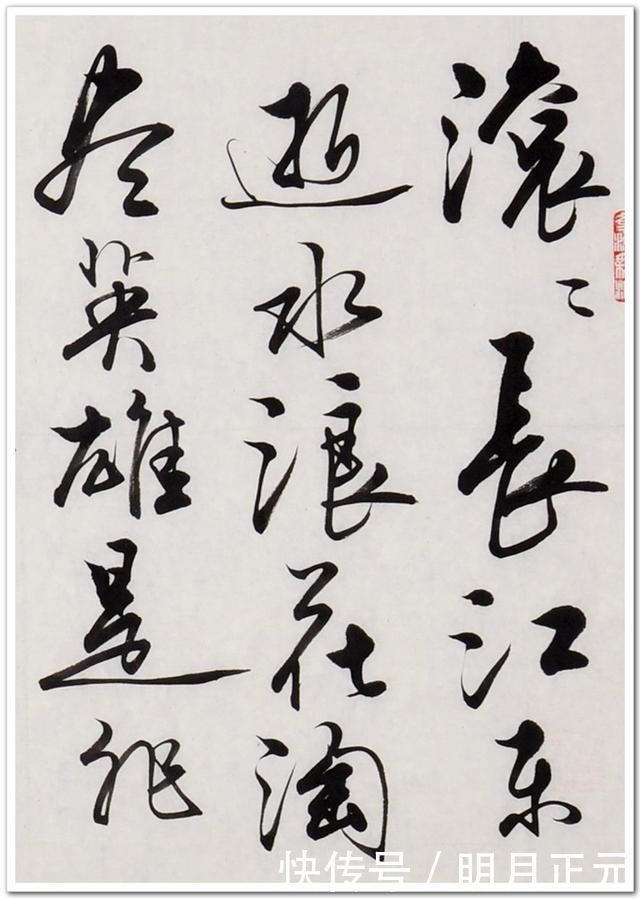 滚〻長江东
逝水浪花淘
尽英雄是非
快传号/明月正元